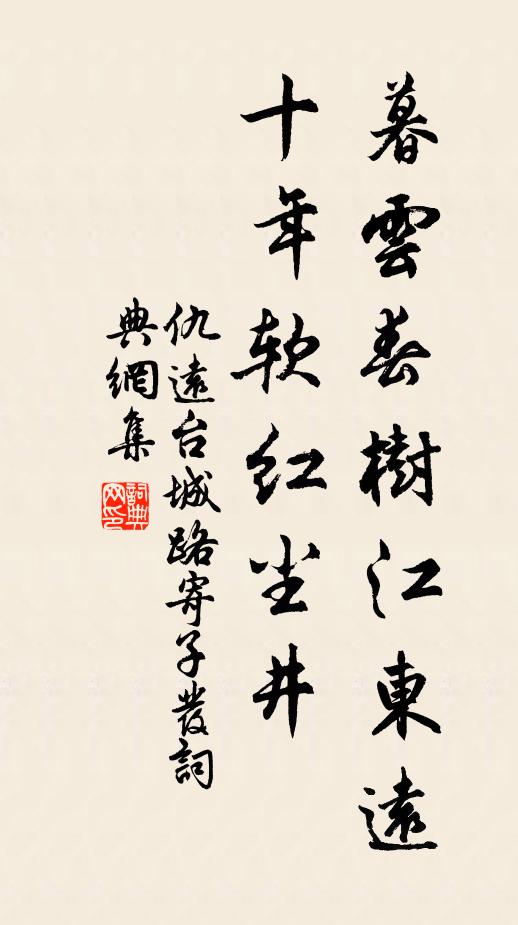 暮雲春樹江東遠
十年軟红尘井
仇遠台城路寄子發詞
典網集
詞典网印